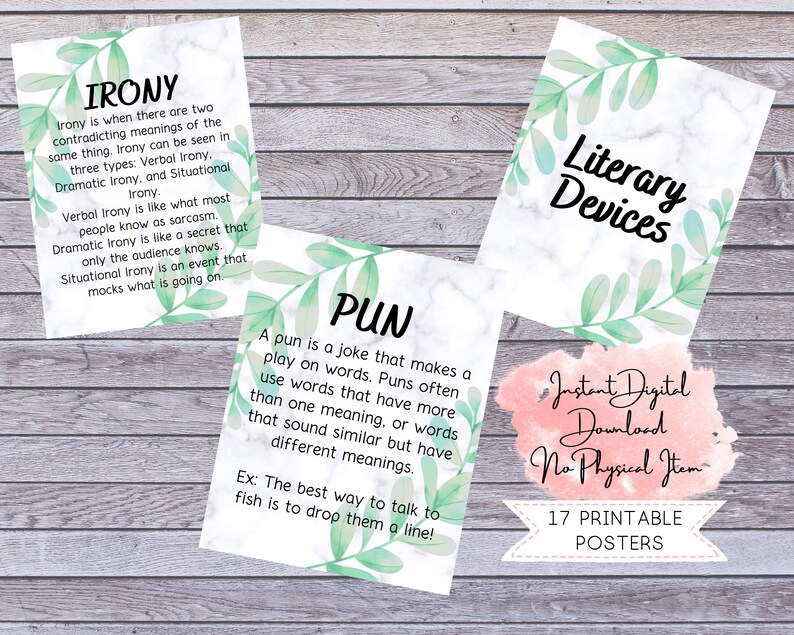 IRONY
Irony is when there are two
contradicting meanings of the
same thing. Irony can be seen in
three types: Verbal Irony,
Dramatic Irony, and Situational
Irony.
Verbal Irony is like what most
people know as sarcasm.
Dramatic Irony is like a secret that
only the audience knows.
Situational Irony is an event that
mocks what is going on.
Literary
Devices
PUN
A pun is a joke that makes a
play on words. Puns often
use words that have more
than one meaning, or words
that sound similar but have
different meanings.
Ex: The best way to talk to
fish is to drop them a line!
Instant Digital
Download
No Physical Item
17 PRINTABLE
POSTERS